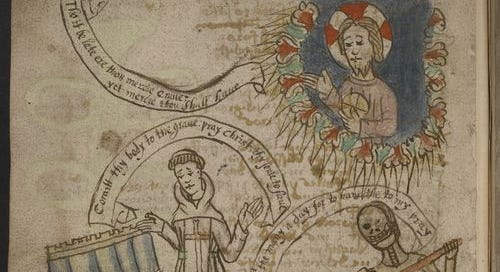 it be late ere thou mercie craue:
yet mercie thou shall haue
Comitt thy body to the graue: pray Christ thy soule to saue
the many a day for to haue the to my pray